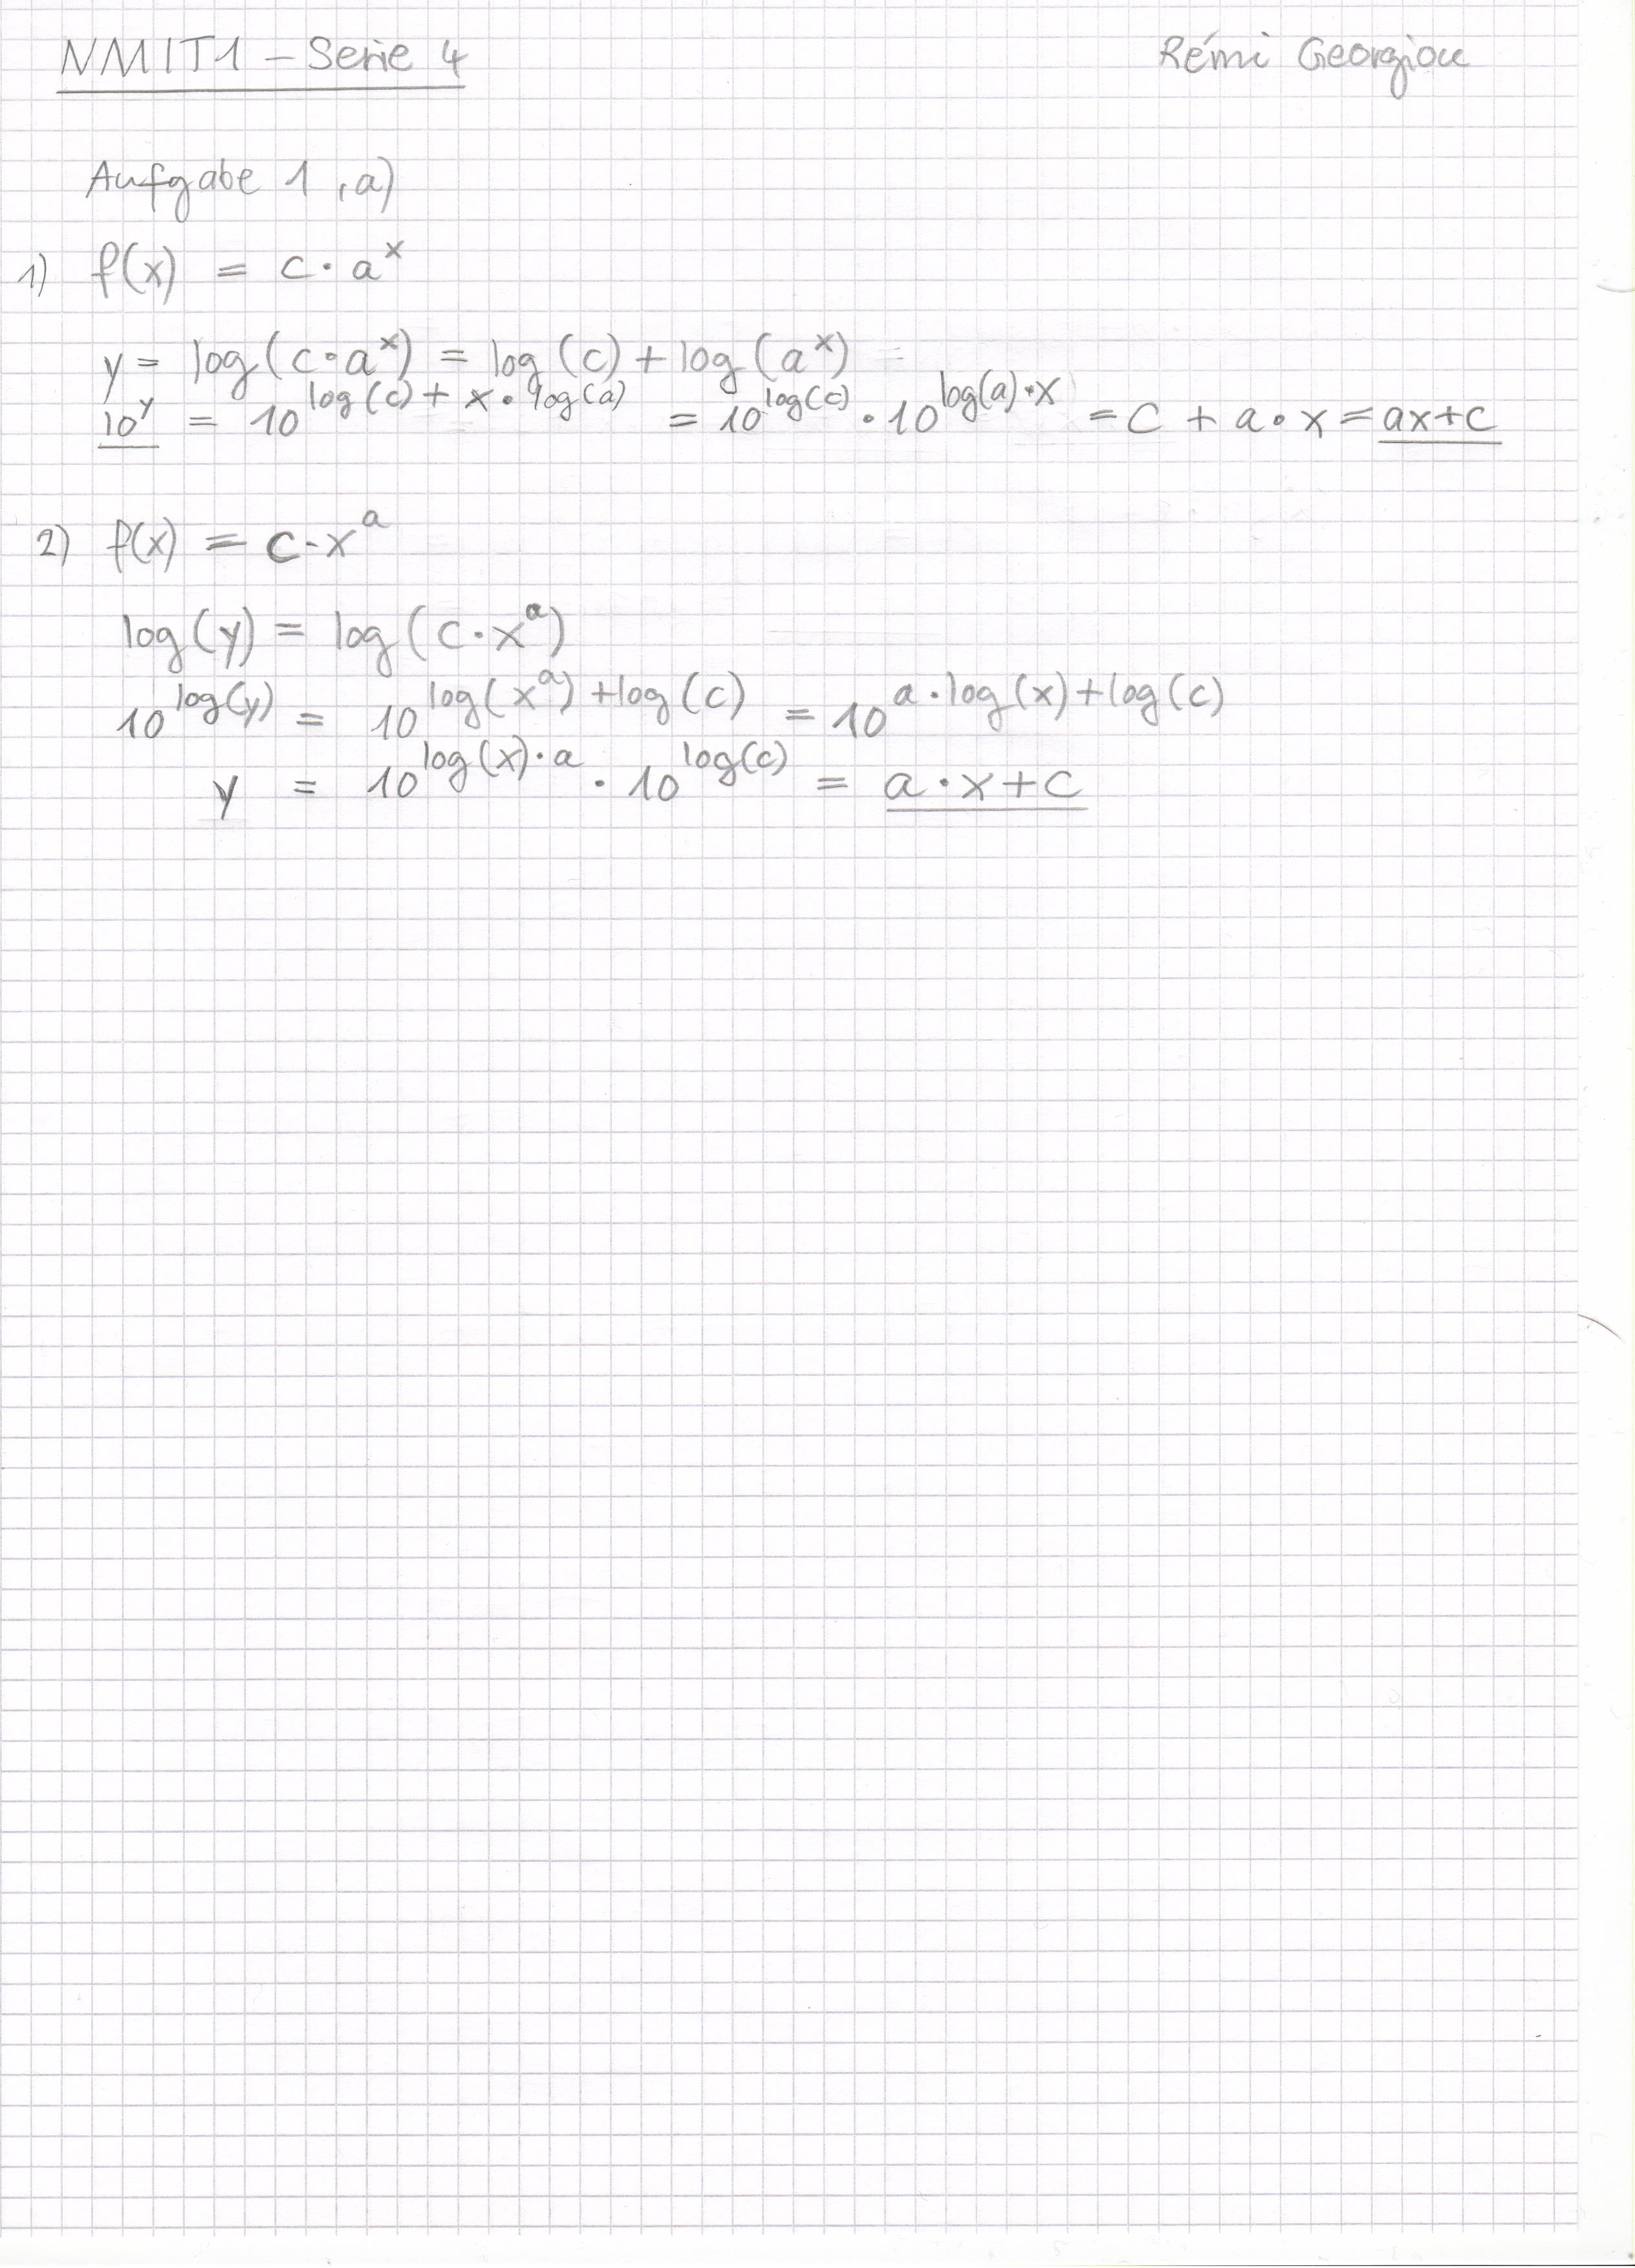 NMIT1 – Serie 4 Rémi Georgiou
Aufgabe 1, a)
1) f(x) = c · a^x
y = log(c · a^x) = log(c) + log(a^x) =
10^y = 10^(log(c) + x · log(a)) = 10^(log(c)) · 10^(log(a) · x) = c + a · x = ax + c
2) f(x) = c · x^a
log(y) = log(c · x^a)
10^(log(y)) = 10^(log(x^a) + log(c)) = 10^(a · log(x) + log(c))
y = 10^(log(x) · a) · 10^(log(c)) = a · x + c